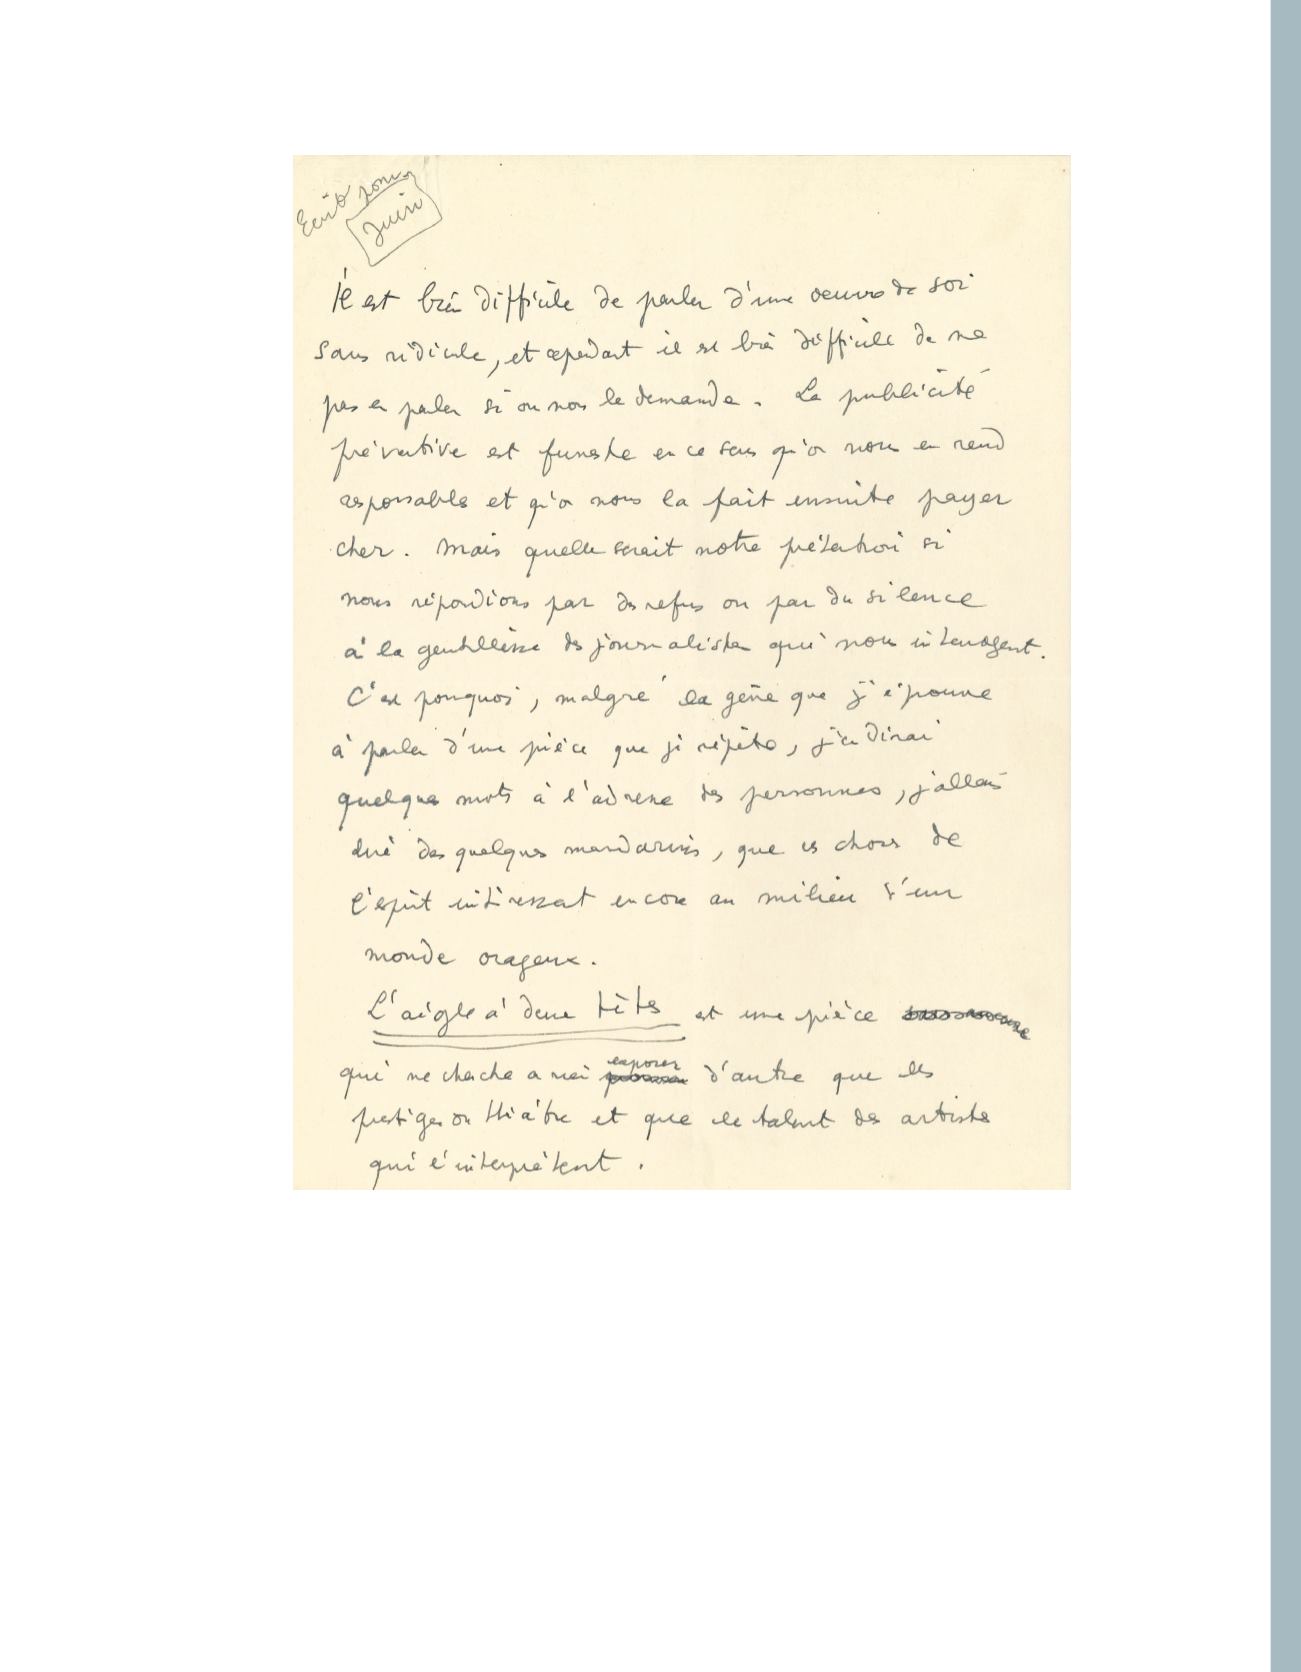 Ecrit pour
Juin
Il est bien difficile de parler d'une oeuvre de soi
sans ridicule, et cependant il est bien difficile de ne
pas en parler si on nous le demande. La publicité
préventive est funeste en ce sens qu'on nous en rend
responsable et qu'on nous la fait ensuite payer
cher. Mais quelle serait notre prétention si
nous répondions par des refus ou par du silence
à la gentillesse des journalistes qui nous interrogent.
C'est pourquoi, malgré la gêne que j'éprouve
à parler d'une pièce que je répète, j'en dirai
quelques mots à l'adresse des personnes, j'allais
dire des quelques mandarins, que les choses de
l'esprit intéressent encore au milieu d'un
monde orageux.
L'aigle à deux têtes est une pièce
qui ne cherche a rien exposer d'autre que les
prestiges du théâtre et que le talent des artistes
qui l'interprètent.